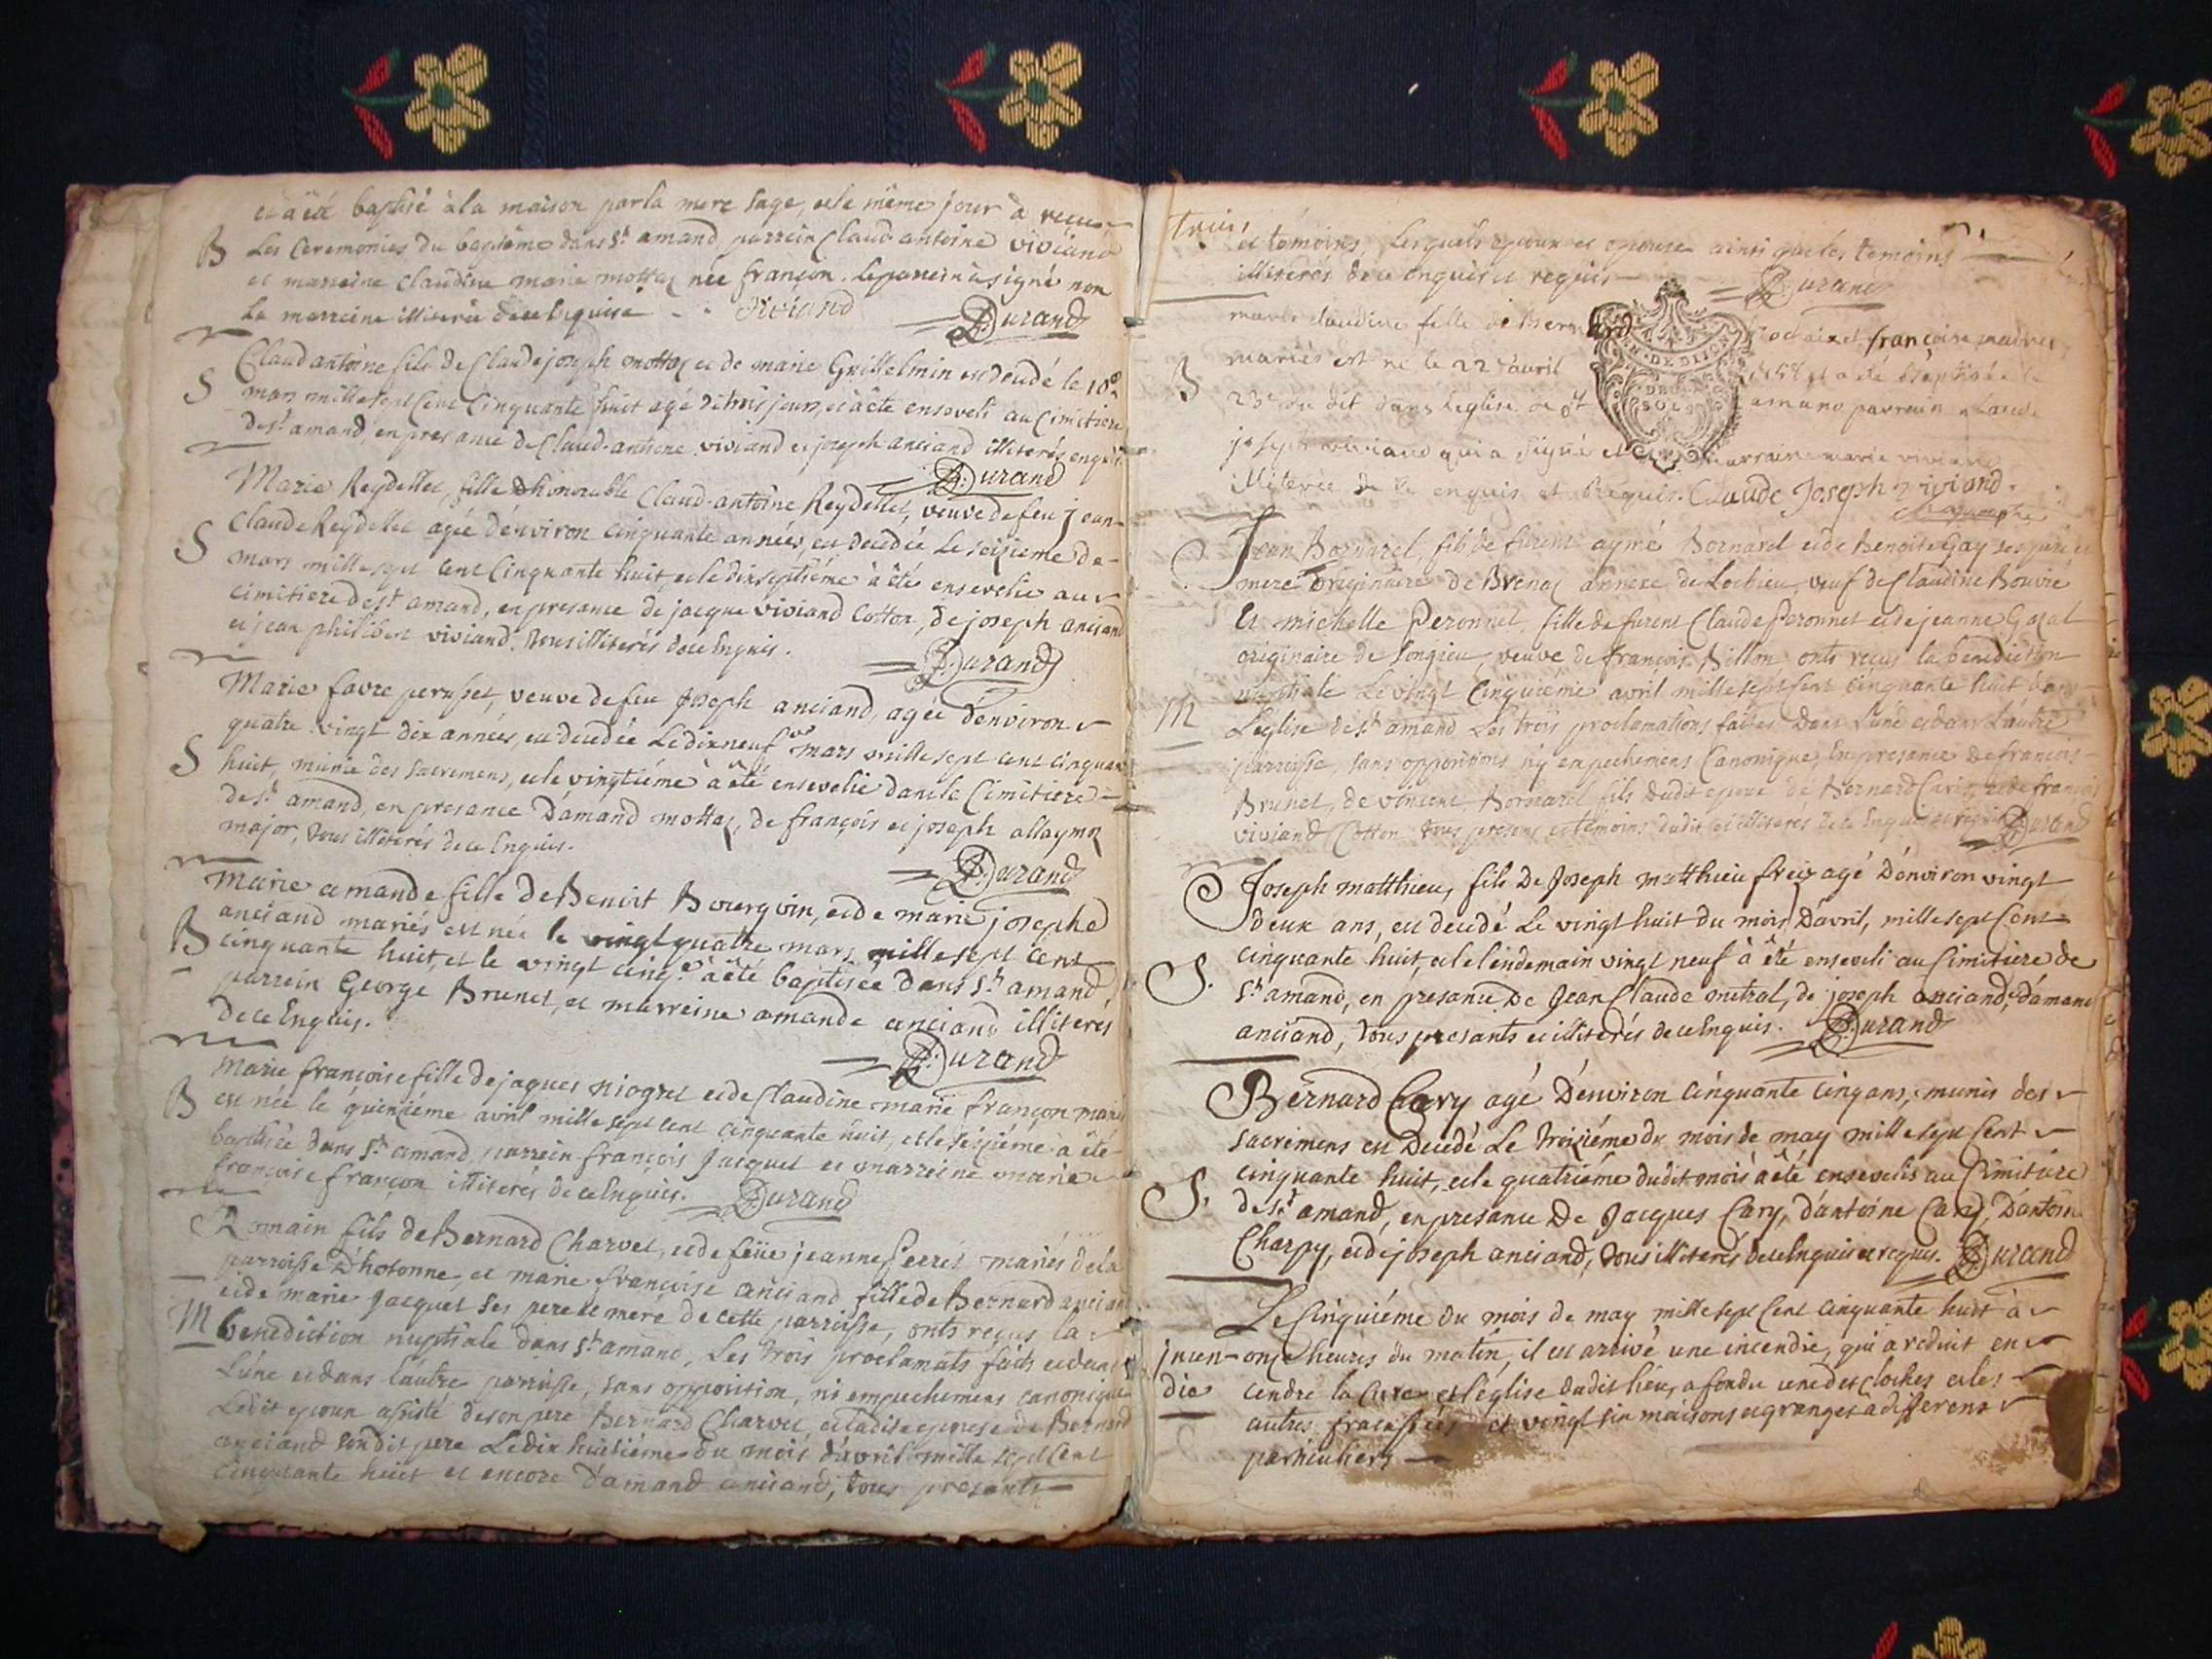 et a été baptisé à la maison par la mere sage, et le même jour à reçus
B
Les Ceremonies du baptême dans St amand, parrein Claud antoine viviand
et marreine claudine marie mottaz née françon. le parrein à signé non
La marreine illiterée de ce Enquise Viviand Durand
Claud antoine fils de Claude joseph mottaz et de marie Guillelmin est decedé le 10e
S
mars mille sept Cent Cinquante huit agé de trois jours, et à été enseveli au Cimitiere
de St amand en presance de Claud-antoine viviand et joseph anciand illiterés enquis
Durand
Marie Reydellet, fille d'honorable Claud-antoine Reydellet, veuve de feu jean
S
Claude Reydellet agée d'environ cinquante années, est decedée Le seizieme de
mars mille sept cent Cinquante huit, et le dixseptiéme à été ensevelie au
Cimitiere de St amand, en presance de jacque viviand Cotton, de joseph anciand
et jean philibert viviand. tous illiterés de ce Enquis.
Durand
Marie favre perusset, veuve de feu Joseph anciand, agée d'environ
quatre vingt dix années, est decedée Le dixneuf mars mille sept cent cinquante
S
huit, munie des sacremens, et le vingtiéme à été ensevelie dans le Cimitiere
de St amand, en presance D'amand mottaz, de françois et joseph allaymoz
major, tous illiterés de ce Enquis.
Durand
Marie amande fille de Benoit Bourgvin, et de marie josephe
B
anciand mariés est née le vingt quatre mars mille sept cent
cinquante huit, et le vingt cinqe à été baptisée dans St amand,
parrein George Brunet, et marreine amande anciand illiteres
de ce Enquis.
Durand
Marie françoise fille de jaques niogret et de Claudine marie françon mariés
B
est née le quinziéme avril mille sept cent cinquante huit, et le seiziéme à été
baptisée dans St amand, parrein françois Jacquet et marreine marie
françoise françon illiterés de ce Enquis. Durand
Romain fils de Bernard Charvet, et de feüe jeanne Perret mariés de la
parroisse d'hotonne, et marie françoise anciand fille de Bernard anciand
et de marie Jacquet ses pere et mere de cette parroisse, onts reçus la
M
benediction nuptiale dans St amand, Les trois proclamats faits et dans
L'une et dans l'autre parroisse, sans opposition, ni empechemens canonique
Ledit epoux assisté de son pere Bernard Charvet, et ladite epouse de Bernard
anciand sondit pere Le dix huitiéme du mois d'avril mille sept cent
cinquante huit et encore d'amand anciand, tous presents
Trois
et témoins, Lesquels epoux et epouse ainsi que les temoins
illiterés de ce enquis et requis Durand
marie claudine fille de Bernard et françoise
B
mariés est né le 22e avril et a été Baptisée le
23e du dit dans l'eglise de St amand parrein claude
joseph viviand qui a signé et marraine marie viviand
illiterée de ce enquis et Requis. Claude Joseph viviand.
GEN. DE DIJON
DEUX SOLS
Jean Bornarel fils de furent aymé Bornarel et de Benoite Gay ses pere et
mere originaire de Brenaz annexe de Lochieu, veuf de Claudine Bouvié
Et michelle Peronnet fille de furent Claude Peronnet et de jeanne Gozal
originaire de songieu, veuve de françois Billon onts reçus la benediction
nuptiale Le vingt cinquiéme avril mille sept cent cinquante huit dans
M
L'eglise de St amand Les trois proclamations faites dans L'une et dans L'autre
parroisse, sans oppositions ny enpechemens Canonique, En presance De francois
Brunet, de vincent Bornarel fils dudit epoux de Bernard Cary, et de françois
viviand Cotton tous presens et temoins dudit et illiterés de ce Enquis et requis Durand
Joseph matthieu, fils De Joseph matthieu freiz agé D'environ vingt
deux ans, est decedé Le vingt huit du mois D'avril, mille sept Cent
S.
cinquante huit, et le lendemain vingt neuf à été enseveli au Cimitiere de
St amand, en presance De Jean Claude mitral, de joseph anciand, d'amand
anciand, tous presants et illiterés de ce Enquis. Durand
Bernard Cary agé D'environ Cinquante Cinq ans, munis des
sacremens est Decedé Le troiziéme du mois de may mille sept Cent
S.
cinquante huit, et le quatriéme dudit mois à été ensevelis au Cimitiére
de St amand, en presance De Jacques Cary, d'antoine Cary, D'antoine
Charpy, et de joseph anciand, tous illiterés de ce Enquis et requis. Durand
Le Cinquiéme du mois de may mille sept Cent Cinquante huit à
incen-
onze heures du matin, il est arrivé une incendie, qui a reduit en
die
cendre la Cure et l'église dudit lieu, a fondu une des cloches et les
autres fracassées et vingt six maisons et granges à differens
particuliers